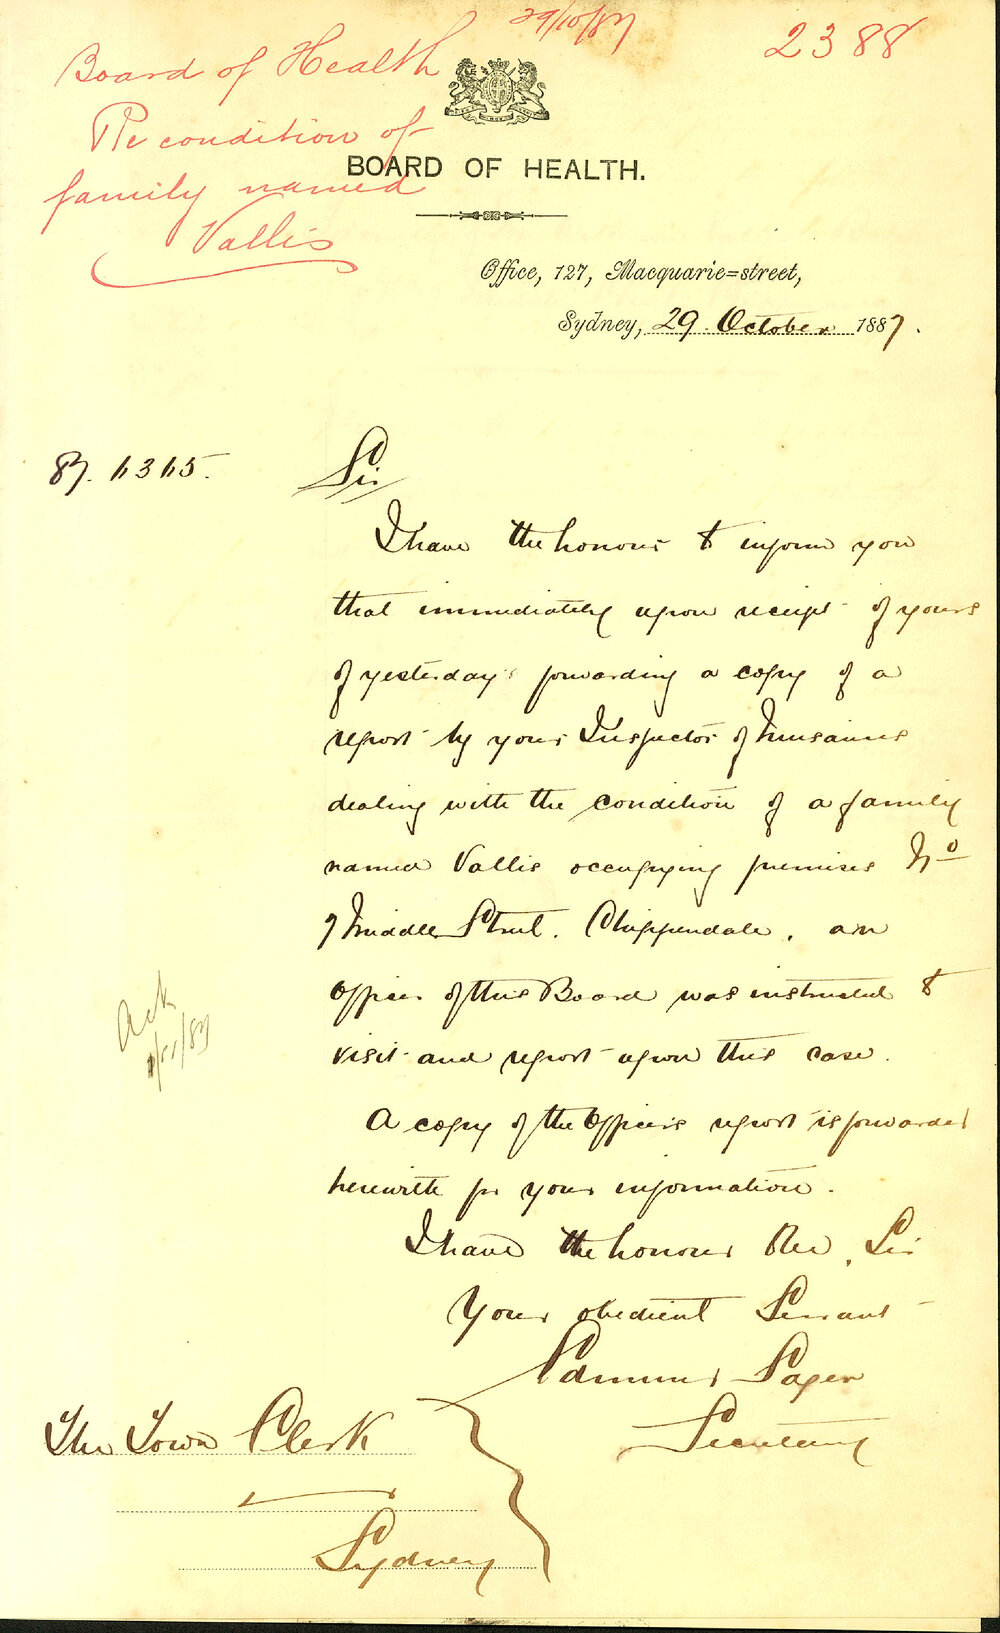 29/10/87
2388
Board of Health
Re condition of
family named
Vallis
BOARD OF HEALTH.
Office, 127, Macquarie=street,
Sydney, 29. October 1887.
87. 6365.
Sir
I have the honour to inform you
that immediately upon receipt of yours
of yesterday's forwarding a copy of a
report by your Inspector of Nuisances
dealing with the condition of a family
named Vallis occupying premises No
7 Middle Street. Chippendale, an
Officer of this Board was instructed to
visit and report upon this case.
A copy of the Officer's report is forwarded
herewith for your information.
I have the honour to be, Sir
Your obedient Servant
Edmund Sager
Secretary
Ack
/11/87
The Town Clerk
Sydney